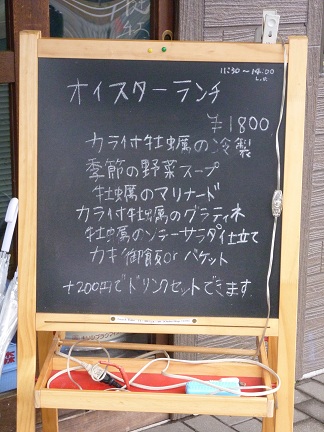 11:30～14:00
L.O.
オイスターランチ
¥1800
カラ付牡蠣の冷製
季節の野菜スープ
牡蠣のマリナード
カラ付牡蠣のグラティネ
牡蠣のソテーサラダ仕立て
カキ御飯orバケット
+200円でドリンクセットできます